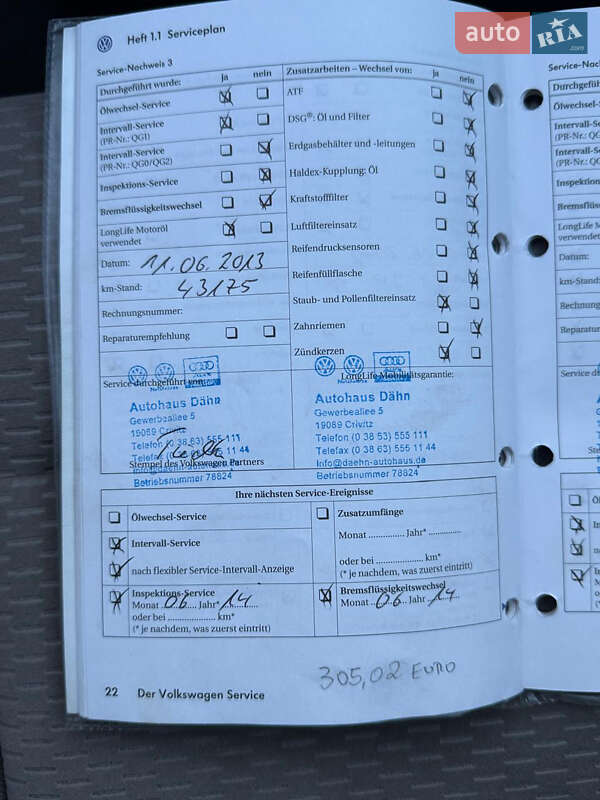 auto RIA .com
Heft 1.1 Serviceplan
Service-Nachweis 3
Durchgeführt wurde: ja nein
Ölwechsel-Service
Intervall-Service
(PR-Nr.: QG1)
Intervall-Service
(PR-Nr.: QG0/QG2)
Inspektions-Service
Bremsflüssigkeitswechsel
LongLife Motoröl
verwendet
Datum: 11.06.2013
km-Stand: 43175
Rechnungsnummer:
Reparaturempfehlung
Zusatzarbeiten – Wechsel von: ja nein
ATF
DSG®: Öl und Filter
Erdgasbehälter und -leitungen
Haldex-Kupplung: Öl
Kraftstofffilter
Luftfiltereinsatz
Reifendrucksensoren
Reifenfüllflasche
Staub- und Pollenfiltereinsatz
Zahnriemen
Zündkerzen
Service durchgeführt von:
Autohaus Dähn
Gewerbeallee 5
19089 Crivitz
Telefon (0 38 63) 555 111
Telefax (0 38 63) 555 11 44
info@daehn-autohaus.de
Betriebsnummer 78824
Stempel des Volkswagen Partners
LongLife Mobilitätsgarantie:
Autohaus Dähn
Gewerbeallee 5
19089 Crivitz
Telefon (0 38 63) 555 111
Telefax (0 38 63) 555 11 44
info@daehn-autohaus.de
Betriebsnummer 78824
Ihre nächsten Service-Ereignisse
Ölwechsel-Service
Intervall-Service
nach flexibler Service-Intervall-Anzeige
Inspektions-Service
Monat 06 Jahr* 14
oder bei ..................... km*
(* je nachdem, was zuerst eintritt)
Zusatzumfänge
Monat .............. Jahr* ..............
oder bei ..................... km*
(* je nachdem, was zuerst eintritt)
Bremsflüssigkeitswechsel
Monat 06 Jahr 14
305,02 EURO
22 Der Volkswagen Service
Service-Nac
Durchgeführt
Ölwechsel-Se
Intervall-Se
(PR-Nr.: QG1)
Intervall-Se
(PR-Nr.: QG0/
Inspektions
Bremsflüss
LongLife M
verwendet
Datum:
km-Stand:
Rechnung
Reparatur
Service d